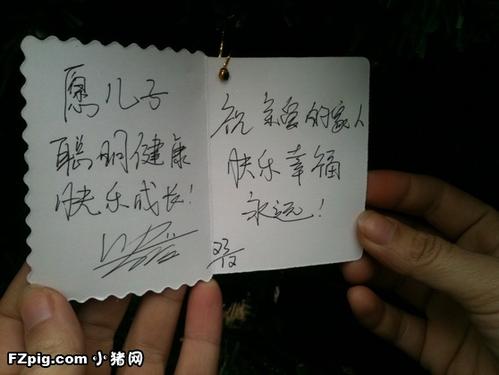 愿儿子
聪明健康
快乐成长!
祝亲爱的家人
快乐幸福
永远!
FZpig.com 小猪网